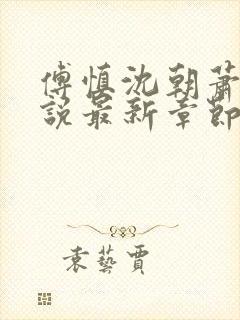 傅慎沈朝萧
說最新章節
袁藝賈